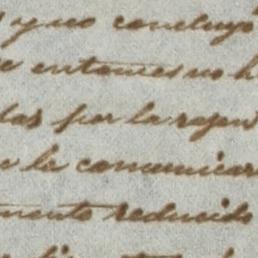 y no concluyó
entonces no h
las por la rezon
e le comunicar
mento reducido